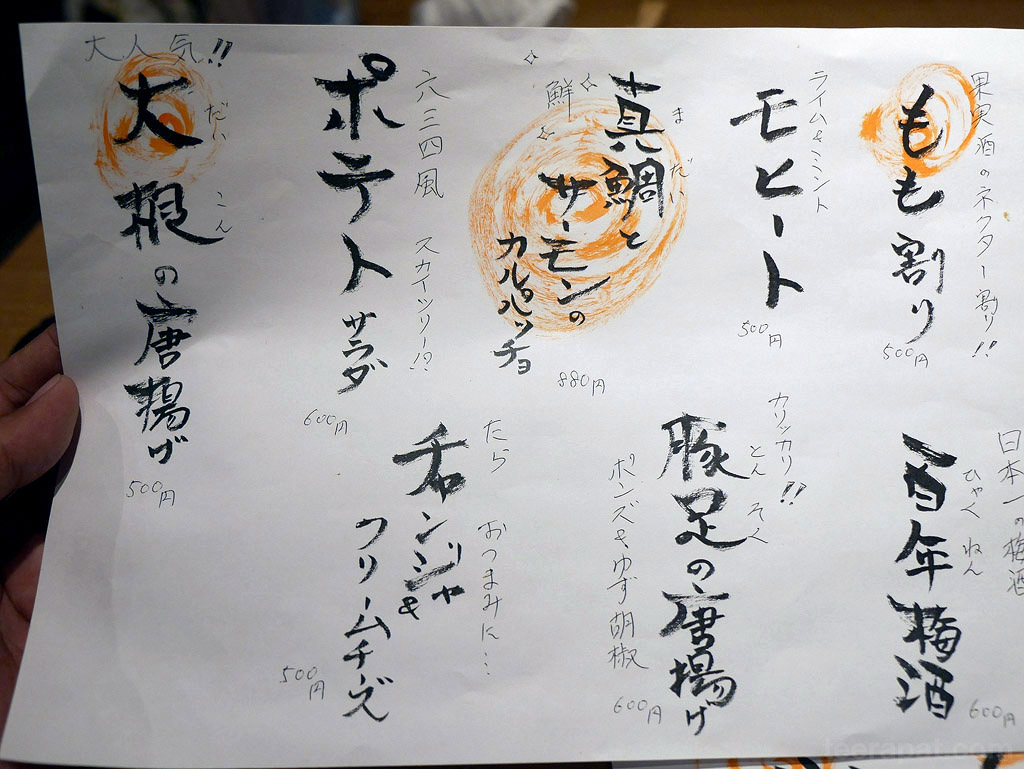 果実酒のネクター割り!!
もも割り
500円
ライム&ミント
モヒート
500円
鮮
真鯛と
まだい
サーモンの
カルパッチョ
880円
六三四風 スカイツリー!?
ポテトサラダ
600円
大人気!!
大根の唐揚げ
だいこん
500円
日本一の梅酒
百年梅酒
ひゃくねん
600円
カリッカリ!!
豚足の唐揚げ
とんそく
ポンズ&ゆず胡椒
600円
たら おつまみに…
チャンジャ&
クリームチーズ
500円